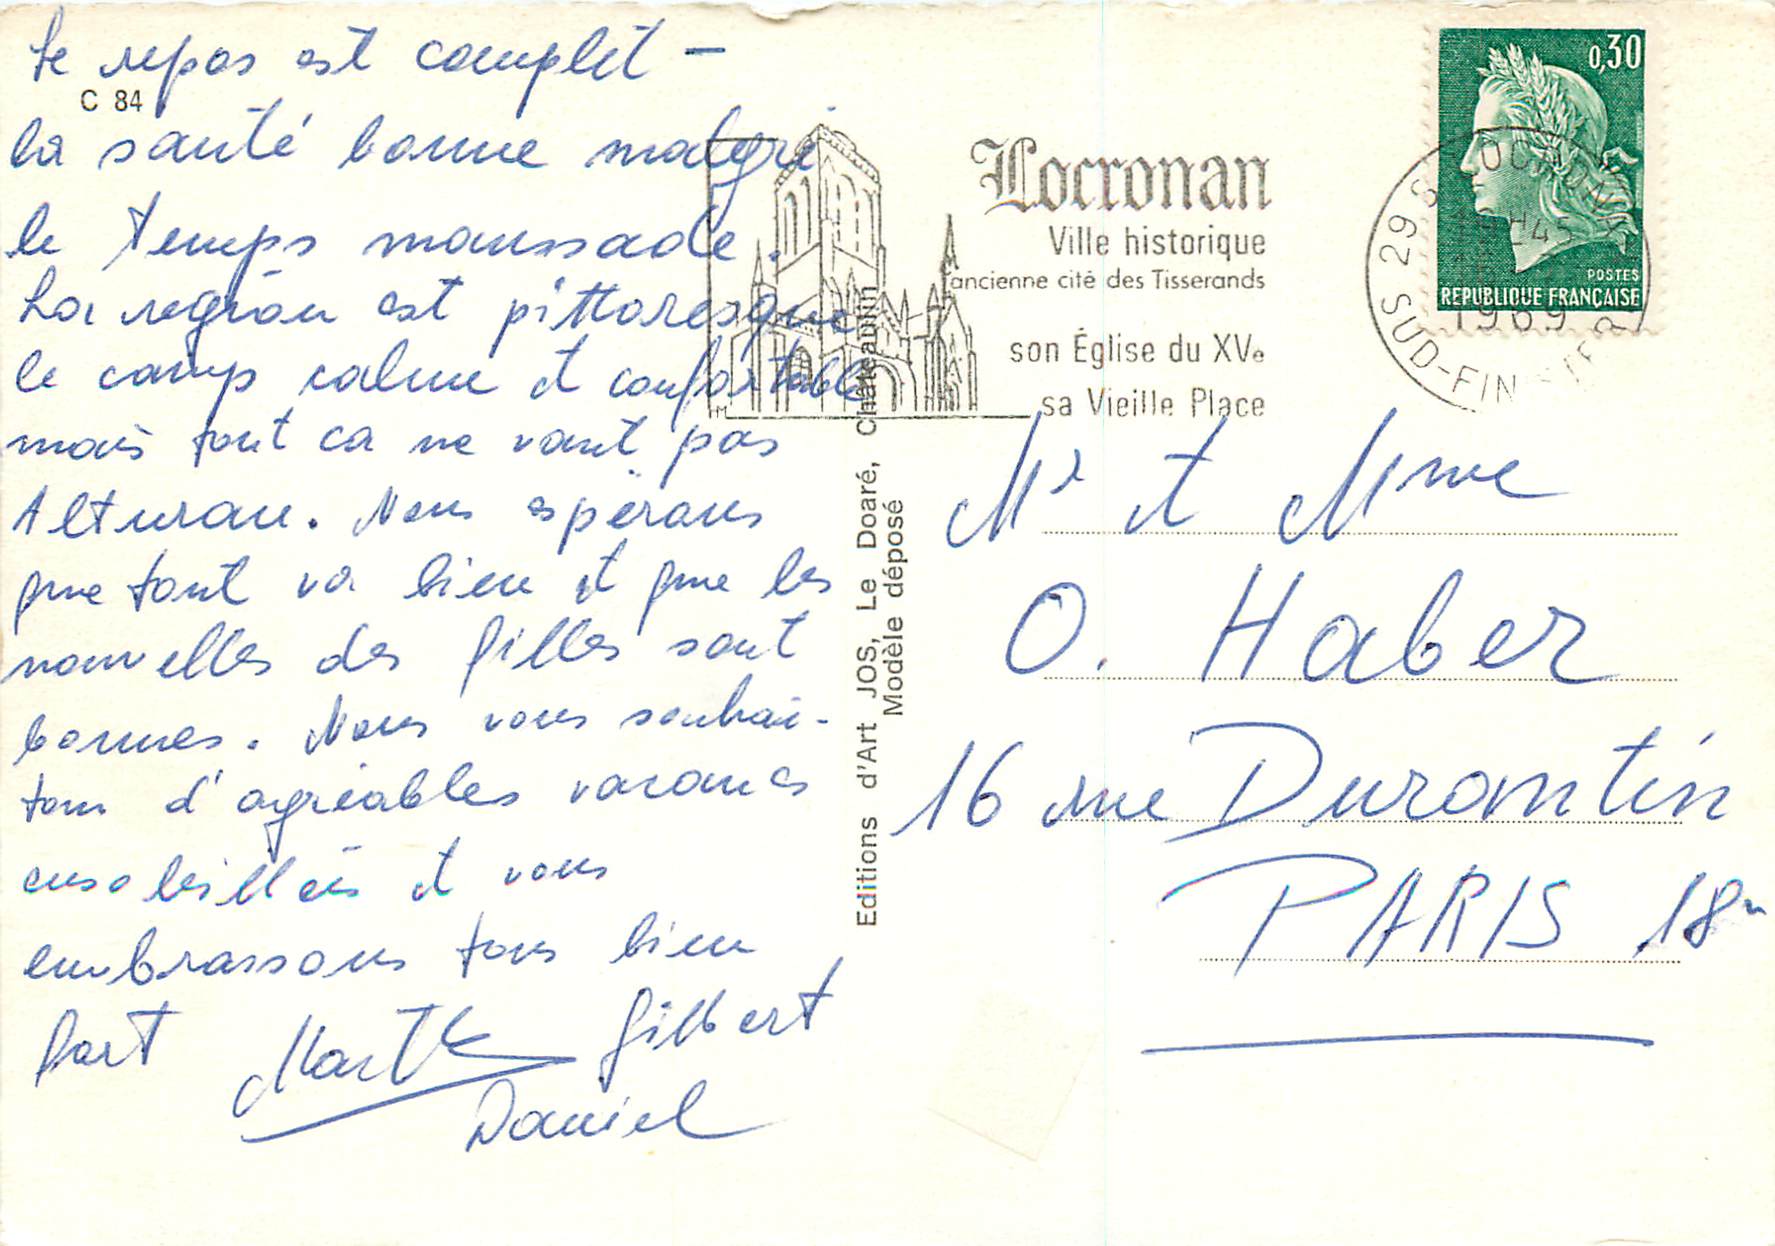 Le repos est complet -
C 84
la santé bonne malgré
le temps maussade.
La région est pittoresque
le camp calme et confortable
mais tout ca ne vaut pas
Alturan. Nous espérons
que tout va bien et que les
nouvelles des filles sont
bonnes. Nous vous souhai-
tons d'agréables vacances
ensoleillées et vous
embrassons tous bien
fort Marthe Gilbert
Daniel
Editions d'Art JOS, Le Doaré, Châteaulin
Modèle déposé
Locronan
Ville historique
ancienne cité des Tisserands
son Église du XVe
sa Vieille Place
0,30
POSTES
REPUBLIQUE FRANÇAISE
29 S LOCRONAN
1969
S SUD-FINISTERE
Mr et Mme
O. Haber
16 rue Durantin
PARIS 18e